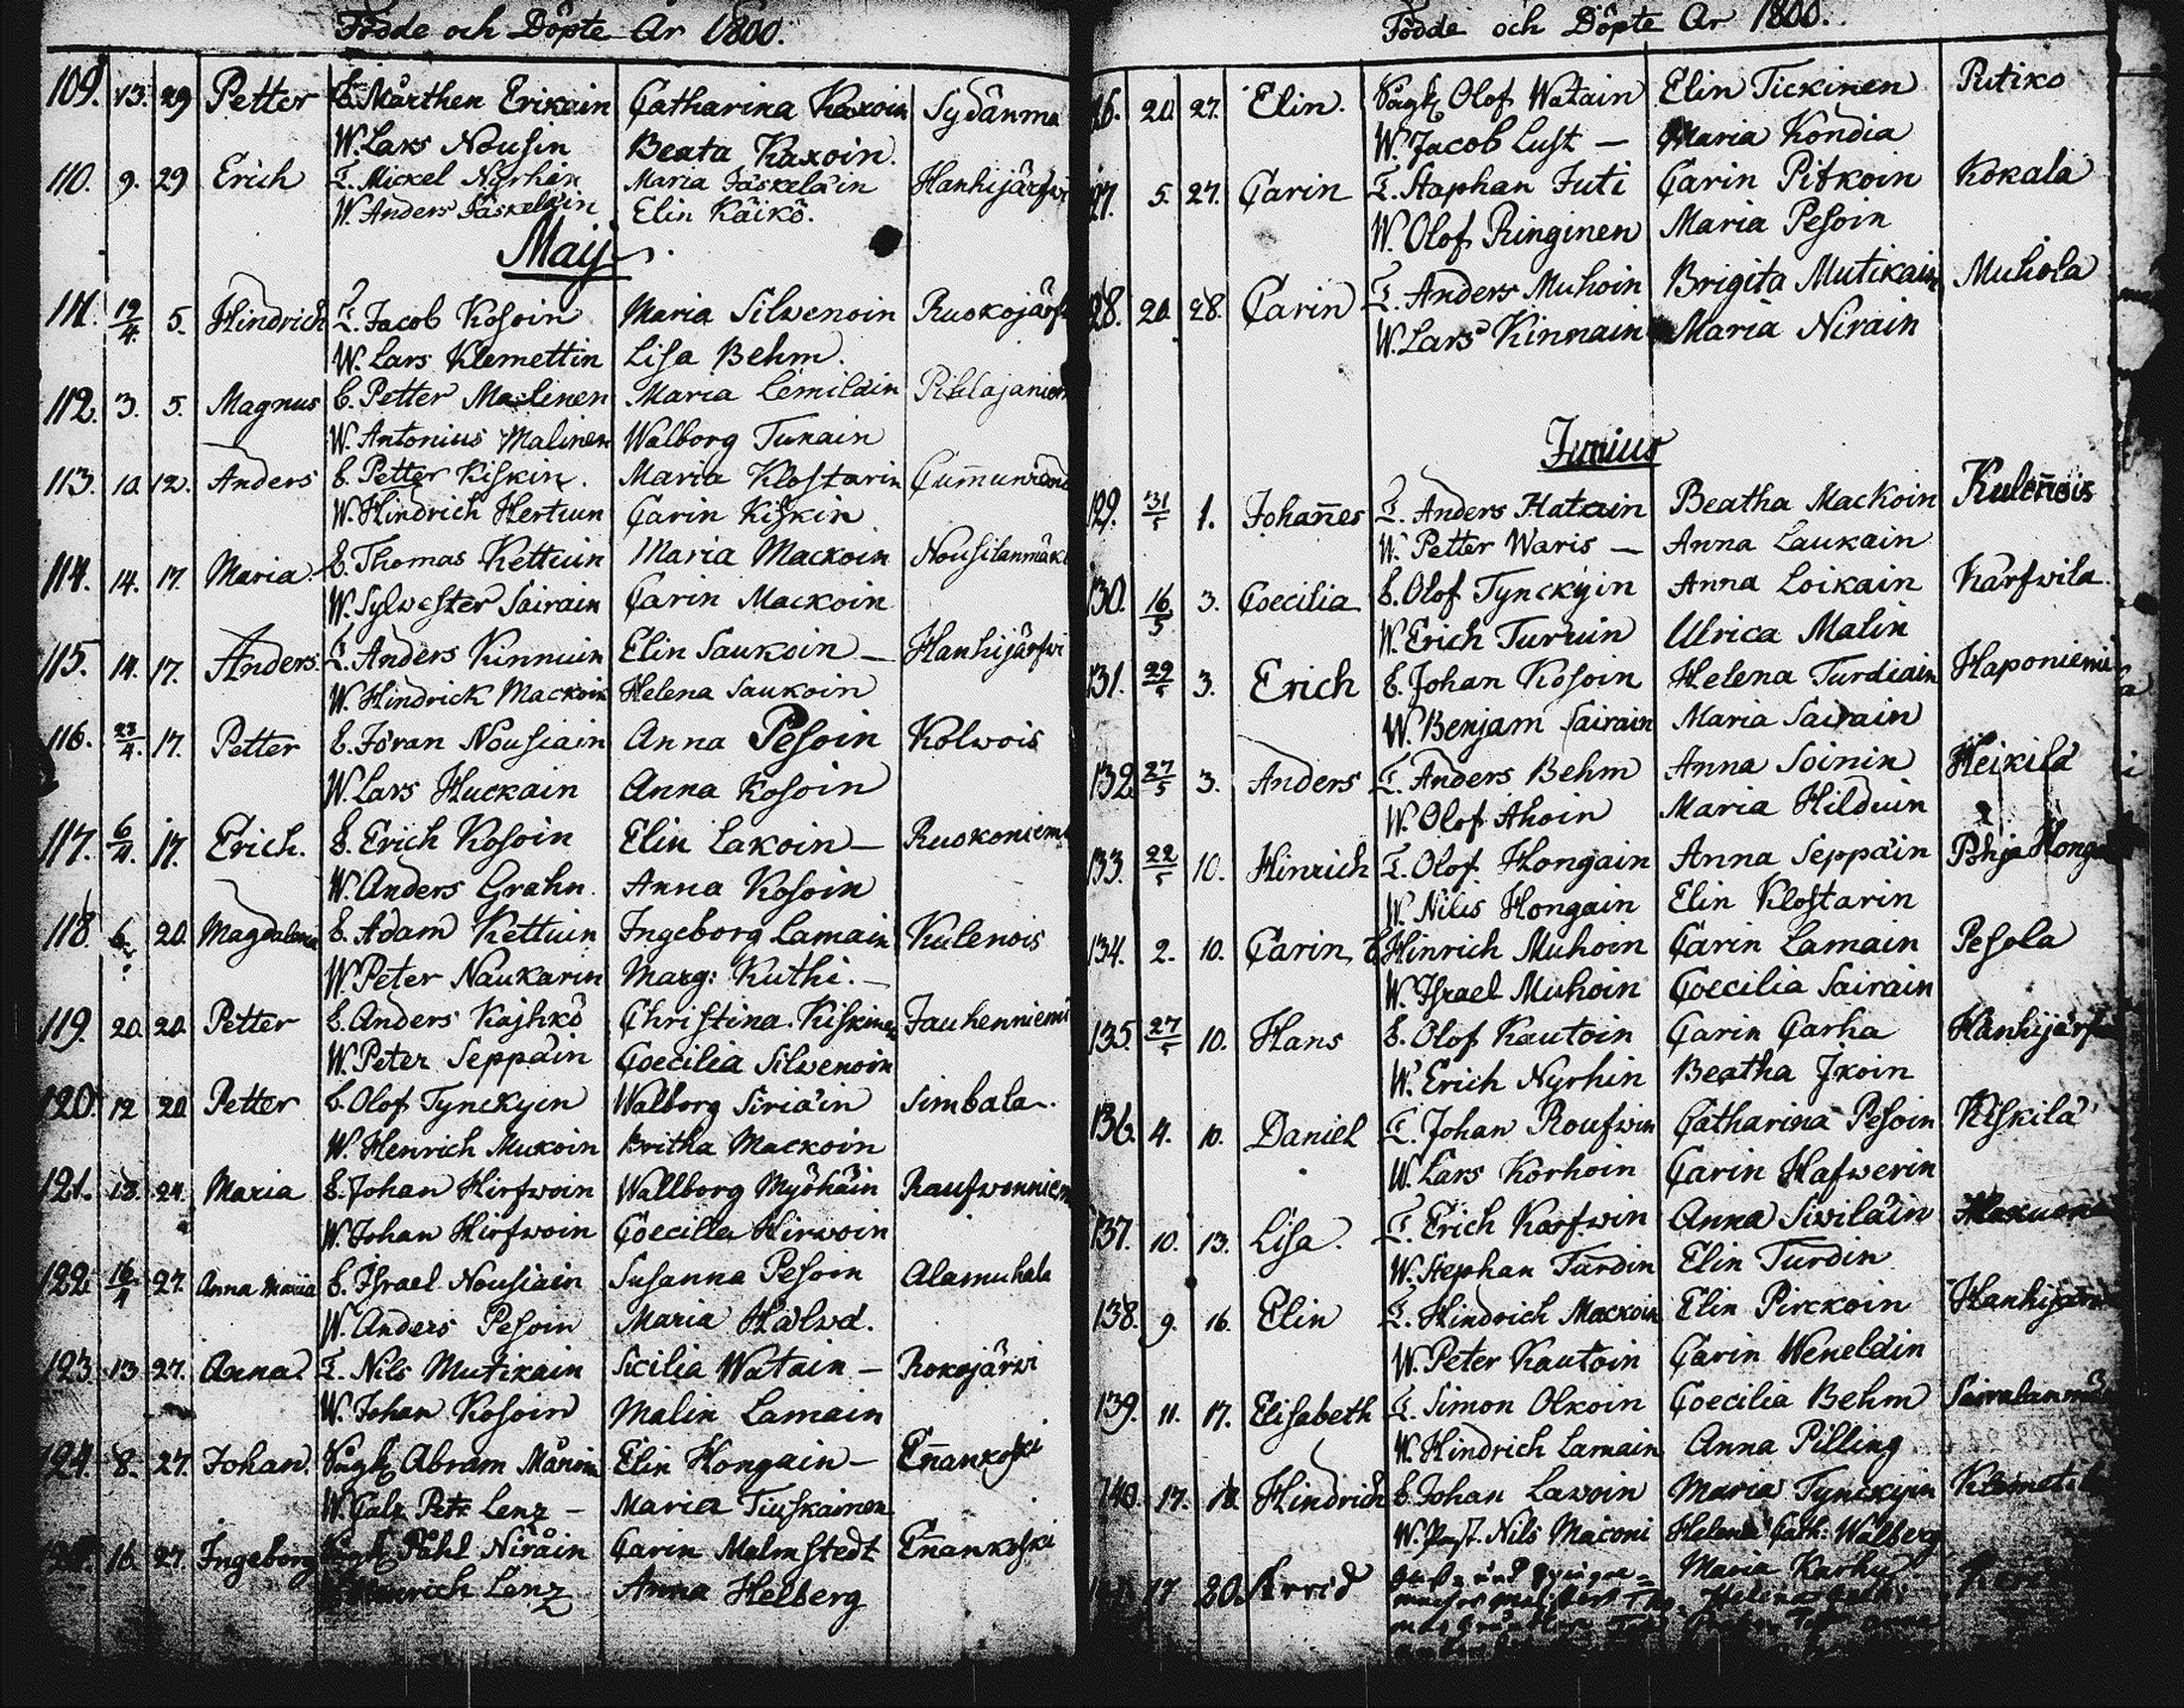 Födde och Döpte År 1800.
109. 13. 29 Petter B. Mårthen Erikain Catharina Kaxoin Sydänma
W. Lars Nousin Beata Kaxoin.
110. 9. 29 Erich T. Mickel Nyrhin Maria Jäskeläin Hanhijärfwi
W. Anders Jäskeläin Elin Käikö.
Maij
111. 19/4. 5. Hindrich T. Jacob Kosoin Maria Silvenoin Ruokojärf
W. Lars Klemettin Lisa Behm.
112. 3. 5. Magnus B. Petter Malinen Maria Lemiläin Pihlajaniem
W. Antonius Malinen Walborg Tunain
113. 10. 12. Anders B. Petter Kiskin. Maria Klostarin
W. Hindrich Hertuun Carin Kiskin
114. 14. 17. Maria. B. Thomas Kettuin Maria Mackoin Nousilanmäki
W. Sylvester Sairain Carin Mackoin
115. 14. 17. Anders. T. Anders Kinnuin Elin Saukoin – Hanhijärfwi
W. Hindrick Mackoin Helena Saukoin
116. 23/4. 17. Petter B. Jöran Nousiain Anna Pesoin Kolwois
W. Lars Huckain Anna Kosoin
117. 6/4. 17. Erich. B. Erich Kosoin Elin Lakoin – Ruokoniemi
W. Anders Grahn. Anna Kosoin
118. 6. 20. Magdalena B. Adam Kettuin Ingeborg Lamain Kulenois
W. Peter Naukarin Marg: Kuthi. –
119. 20. 20. Petter B. Anders Kajhkö Christina Kiskinen Jauhenniemi
W. Peter Seppäin Coecilia Silvenoin
120. 12 20 Petter B. Olof Tynckyin Walborg Siriäin Simbala.
W. Henrich Mukoin Britha Mackoin
121. 18. 24. Maria B. Johan Hirfwoin Wallborg Myöhäin Raufwonniem
W. Johan Hirfwoin Coecilia Hirwoin
122. 16/4 27. Anna Maria B. Israel Nousiain Susanna Pesoin Alamuhala
W. Anders Pesoin Maria Halwd.
123. 13. 27. Anna. T. Nils Mutikain Sicilia Watain – Rokojärvi
W. Johan Kosoin Malin Lamain
124. 8. 27. Johan. Abram Elin Hongain – En̄ankoski
W. Petr Lenz – Maria Tiuskainen
16. 27. Ingeborg Påhl Niråin Carin Malmstedt En̄ankoski
Hinrich Lenz Anna Helberg
Födde och Döpte År 1800.
26. 20. 27. Elin. Olof Watain Elin Tickinen Putiko
W. Jacob Lust – Maria Kondia
27. 5. 27. Carin T. Staphan Juti Carin Pitkoin Kokala
W. Olof Ringinen Maria Pesoin
28. 20. 28. Carin T. Anders Muhoin Brigita Mutikain Muhola
W. Lars Kinnain Maria Nirain
Junius
129. 31/5 1. Johan̄es T. Anders Hatain Beatha Mackoin Kulen̄ois
W. Petter Waris – Anna Laukain
130. 16/5 3. Coecilia B. Olof Tynckyin Anna Loikain Karfwila.
W. Erich Turuin Ulrica Malin
131. 29/5 3. Erich B. Johan Kosoin Helena Turdiain Haponiemi
W. Benjam Sairain Maria Sairain
132. 27/5 3. Anders T. Anders Behm Anna Soinin Heikilä
W. Olof Ahoin Maria Hilduin
133. 22/5 10. Hinrich T. Olof Hongain Anna Seppäin Pohja Honga
W. Nilis Hongain Elin Klostarin
134. 2. 10. Carin, B. Hinrich Muhoin Carin Lamain Pesola
W. Israel Muhoin Coecilia Sairain
135. 27/5 10. Hans B. Olof Kautoin Carin Carha Hanhijärf
W. Erich Nyrhin Beatha Ikoin
136. 4. 10. Daniel T. Johan Roufwin Catharina Pesoin Kiskilä
W. Lars Korhoin Carin Hafwerin
137. 10. 13. Lisa. T. Erich Karfwin Anna Siviläin
W. Stephan Turdin Elin Turdin
138. 9. 16. Elin T. Hindrich Mackoin Elin Pirckoin Hanhijärw
W. Peter Kautoin Carin Weneldin
139. 11. 17. Elisabeth T. Simon Olkoin Coecilia Behm Sairalanmä
W. Hindrich Lamain Anna Pilling
140. 17. 18. Hindrich B. Johan Lawoin Maria Tynckyin Klemeti
W. Past. Nils Maconi Helena Cath: Walberg
17 20. Arvid Maria Karhu